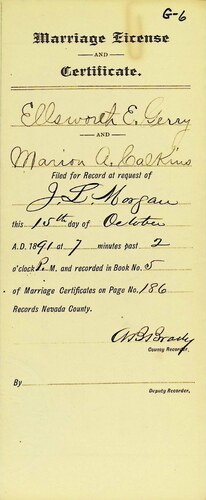 G-6
Marriage License
AND
Certificate.
Ellsworth E. Gerry
AND
Marion A. Calkins
Filed for Record at request of
J. L. Morgan
this 15th day of October
A.D. 1891 at 7 minutes past 2
o'clock P. M. and recorded in Book No. 5
of Marriage Certificates on Page No. 186
Records Nevada County.
Brady
County Recorder.
By
Deputy Recorder.